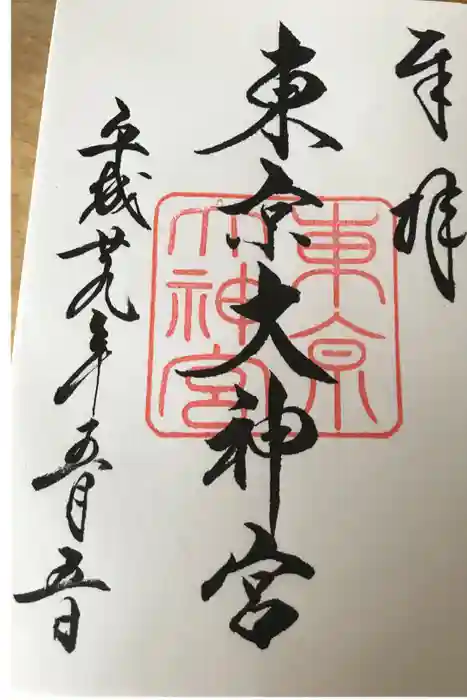 奉拝
東京大神宮
東京大神宮
平成廿九年五月五日